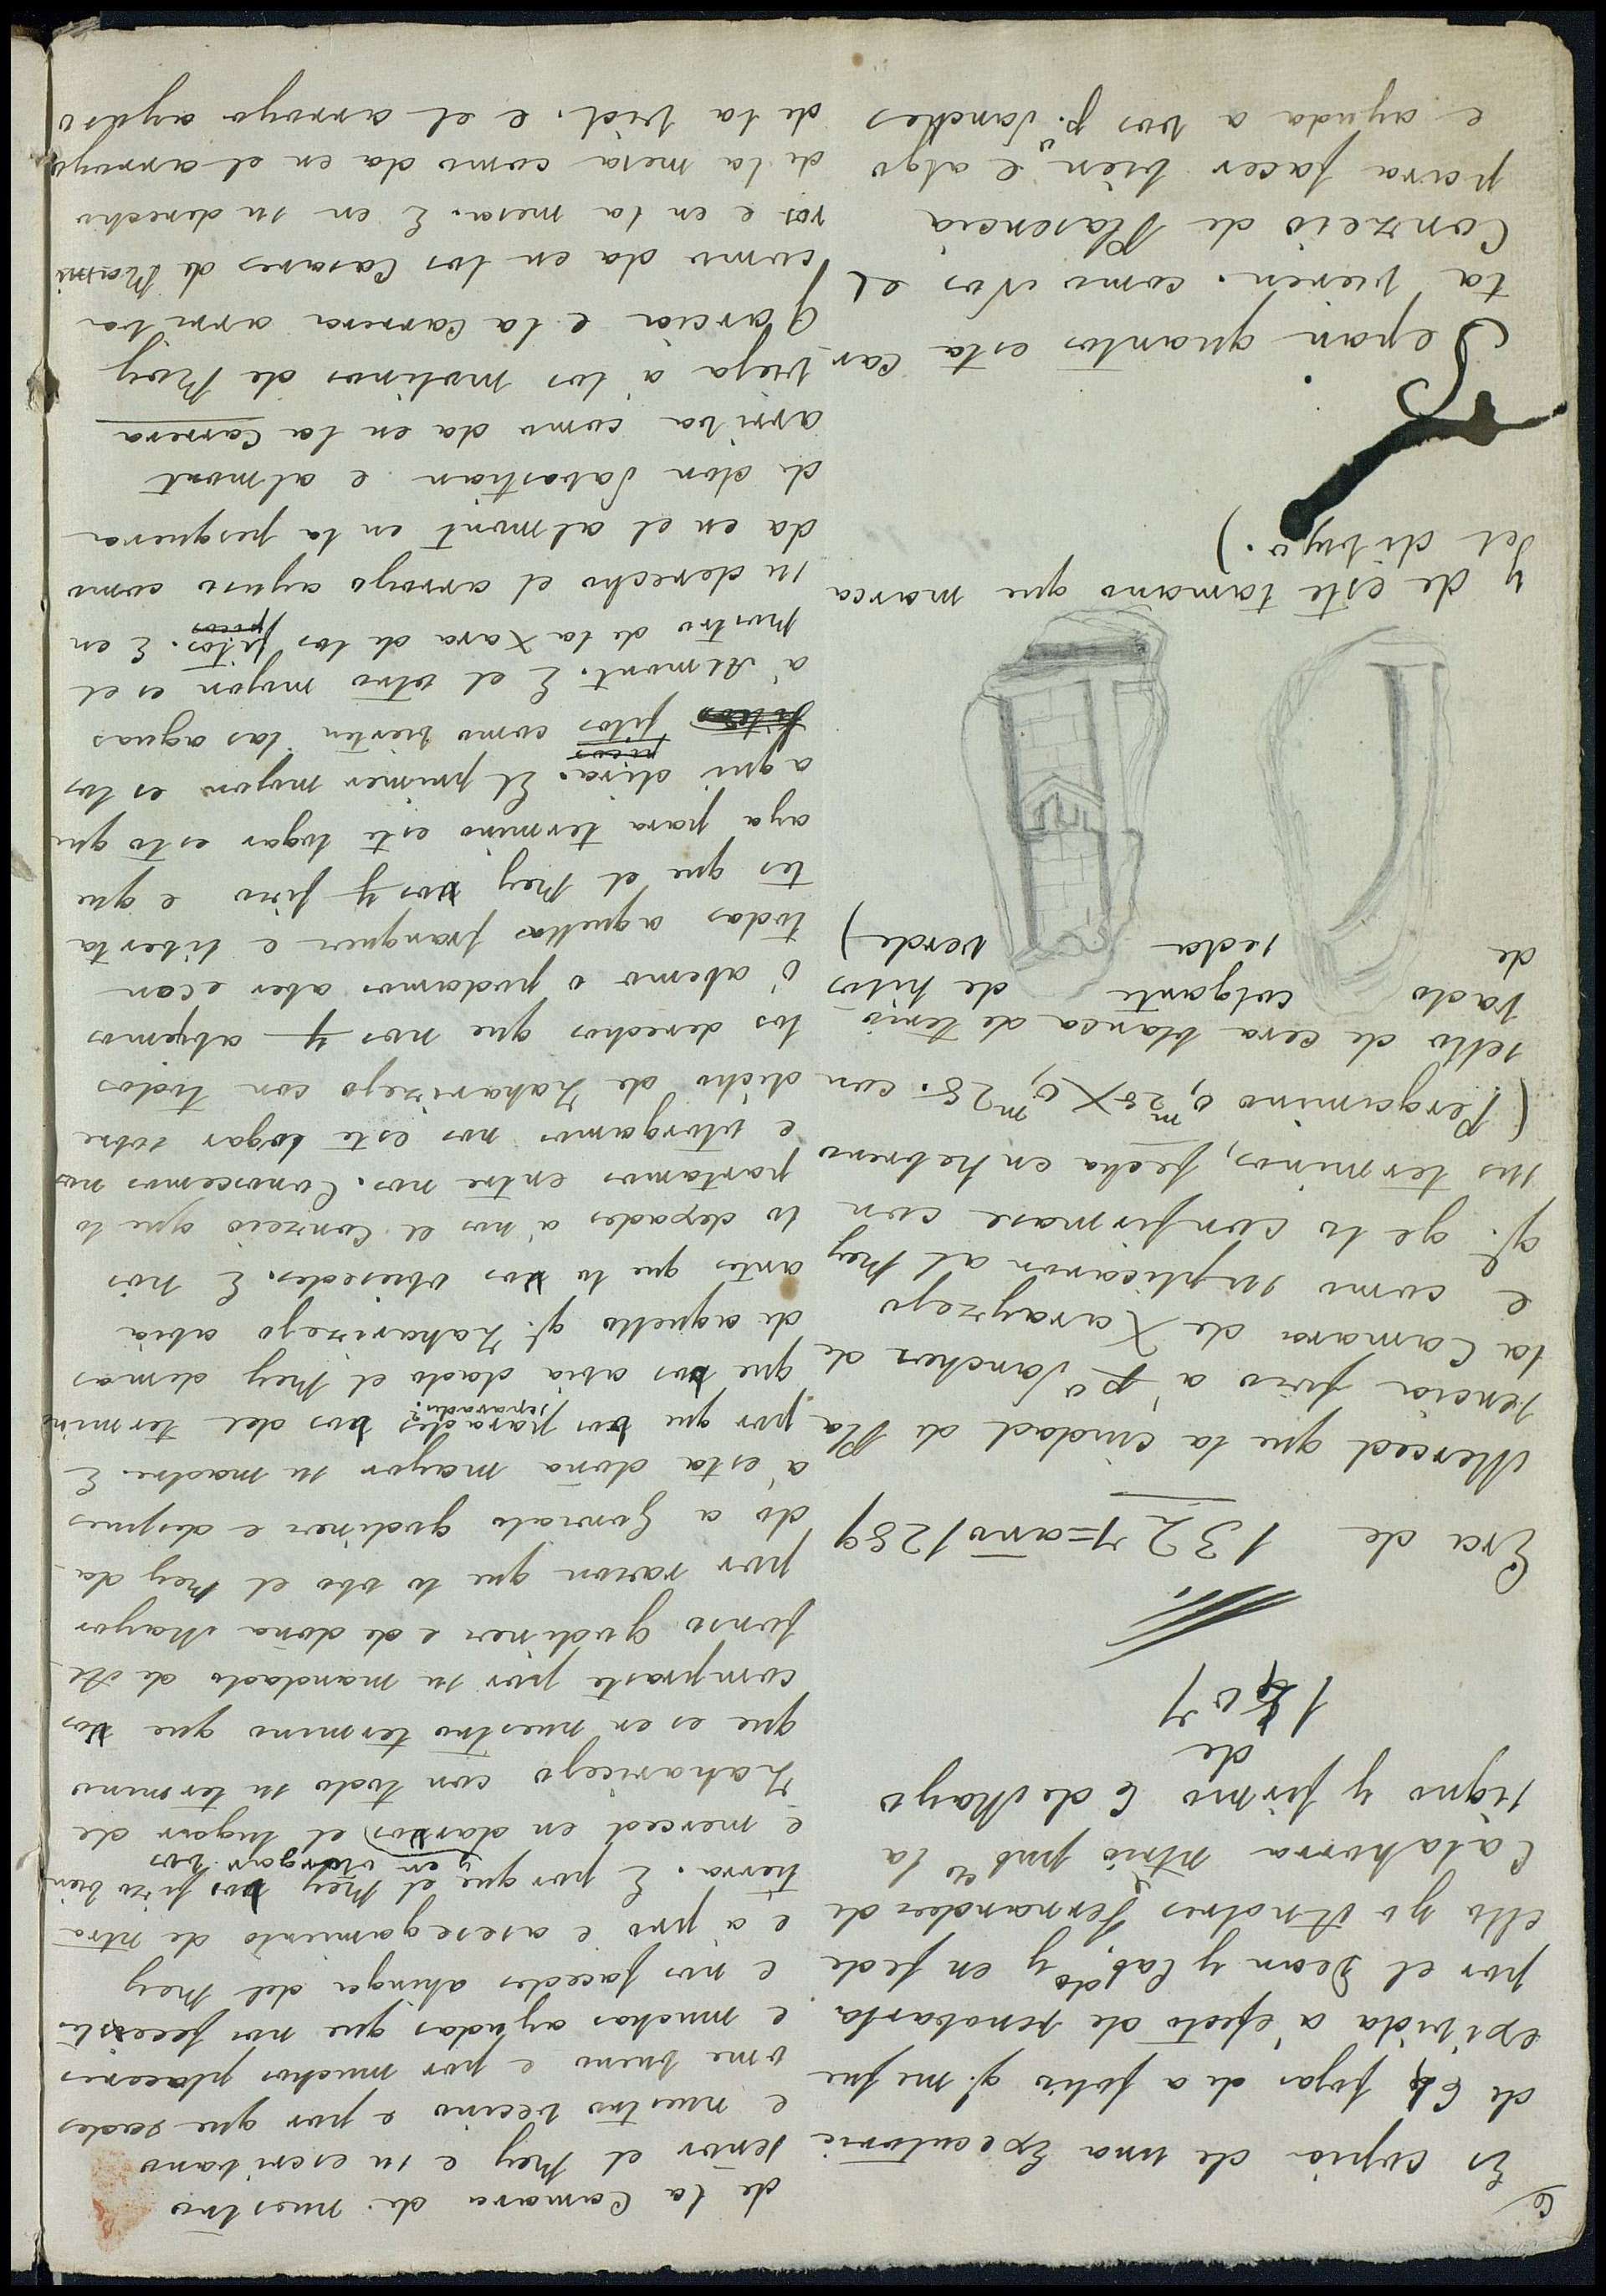 6
Es copia de una Executoria
de 64 fojas de a folio q. me fue
exivida a' efecto de renovarla
por el Dean y Cab.do y en fe de
ello yo Andres Fernandez de
Calahorra ntrio pub.co la
signo y firmo 6 de Mayo
de
1607
Era de 1327=año 1289
Merced que la ciudad de Pla
sencia fizo a' p.o Sanchez de
la Camara de Xarayzejo
e como suplicaron al Rey
q.e ge lo confirmase con
sus terminos, fecha en hebrero
(Pergamino 0,m28 X 0,m28. con
sello de cera blanca de tenio-
vado colgante de hilos
de seda verde)
Y de este tamaño que marca
el dibujo.)
Sepan quantos esta car
ta vieren. como Nos el
Conzeio de Plasencia
para facer bien e algo
e ayuda a vos p.o Sanches
de la Camara de nuestro
señor el Rey e su escribano
e nuestro vecino e por que sodes
ome bueno e por muchos placeres
e muchas ayudas que nos feciestes
e nos facedes ahinger del Rey
e a' pro e asesegamiento de ntra
tierra. E por que el Rey vos fizo bien
(en otorgar vos
e merced en darvos) el lugar de
Zaharicejo con todo su termino
que es en nuestro termino que vos
compraste por su mandado de Al-
fonso godinez e de doña Mayor
por razon que lo obo el Rey da-
do a Gonzalo godinez e despues
a' esta doña mayor su madre. E
por que vos parades vos del termino
separades?
que vos abia dado el Rey demas
de aquello q.e Zaharizejo abia
antes que lo vos obiesedes. E nos
lo dexades a' nos el Conzeio que lo
partamos entre nos. Conoscemos nos
e otorgamos nos este logar sobre
dicho de Zaharizejo con todos
los derechos que nos y abyemos
o' abemo o podamos aber e con
todas aquellas franquez e liberta
tes que el Rey vos y fizo e que
aya para termino este logar esto que
aqui dira. El primer mojon es los
picos
fitos fitos como vierten las aguas
a' Almont. E el otro mojon es el
mostro de la Xara de los fitos. E en
picos
su derecho el arroyo ayuso como
da en el almont en la pesquera
de don Sabastian e almont
arriba como da en la Carrera
vieja a' los molinos de Roy
Garcia e la Carrera arriba
como da en los Casares de Rami
ros e en la mesa. E en su derecho
de la mesa como da en el arroyo
de la vid. e el arroyo ayuso